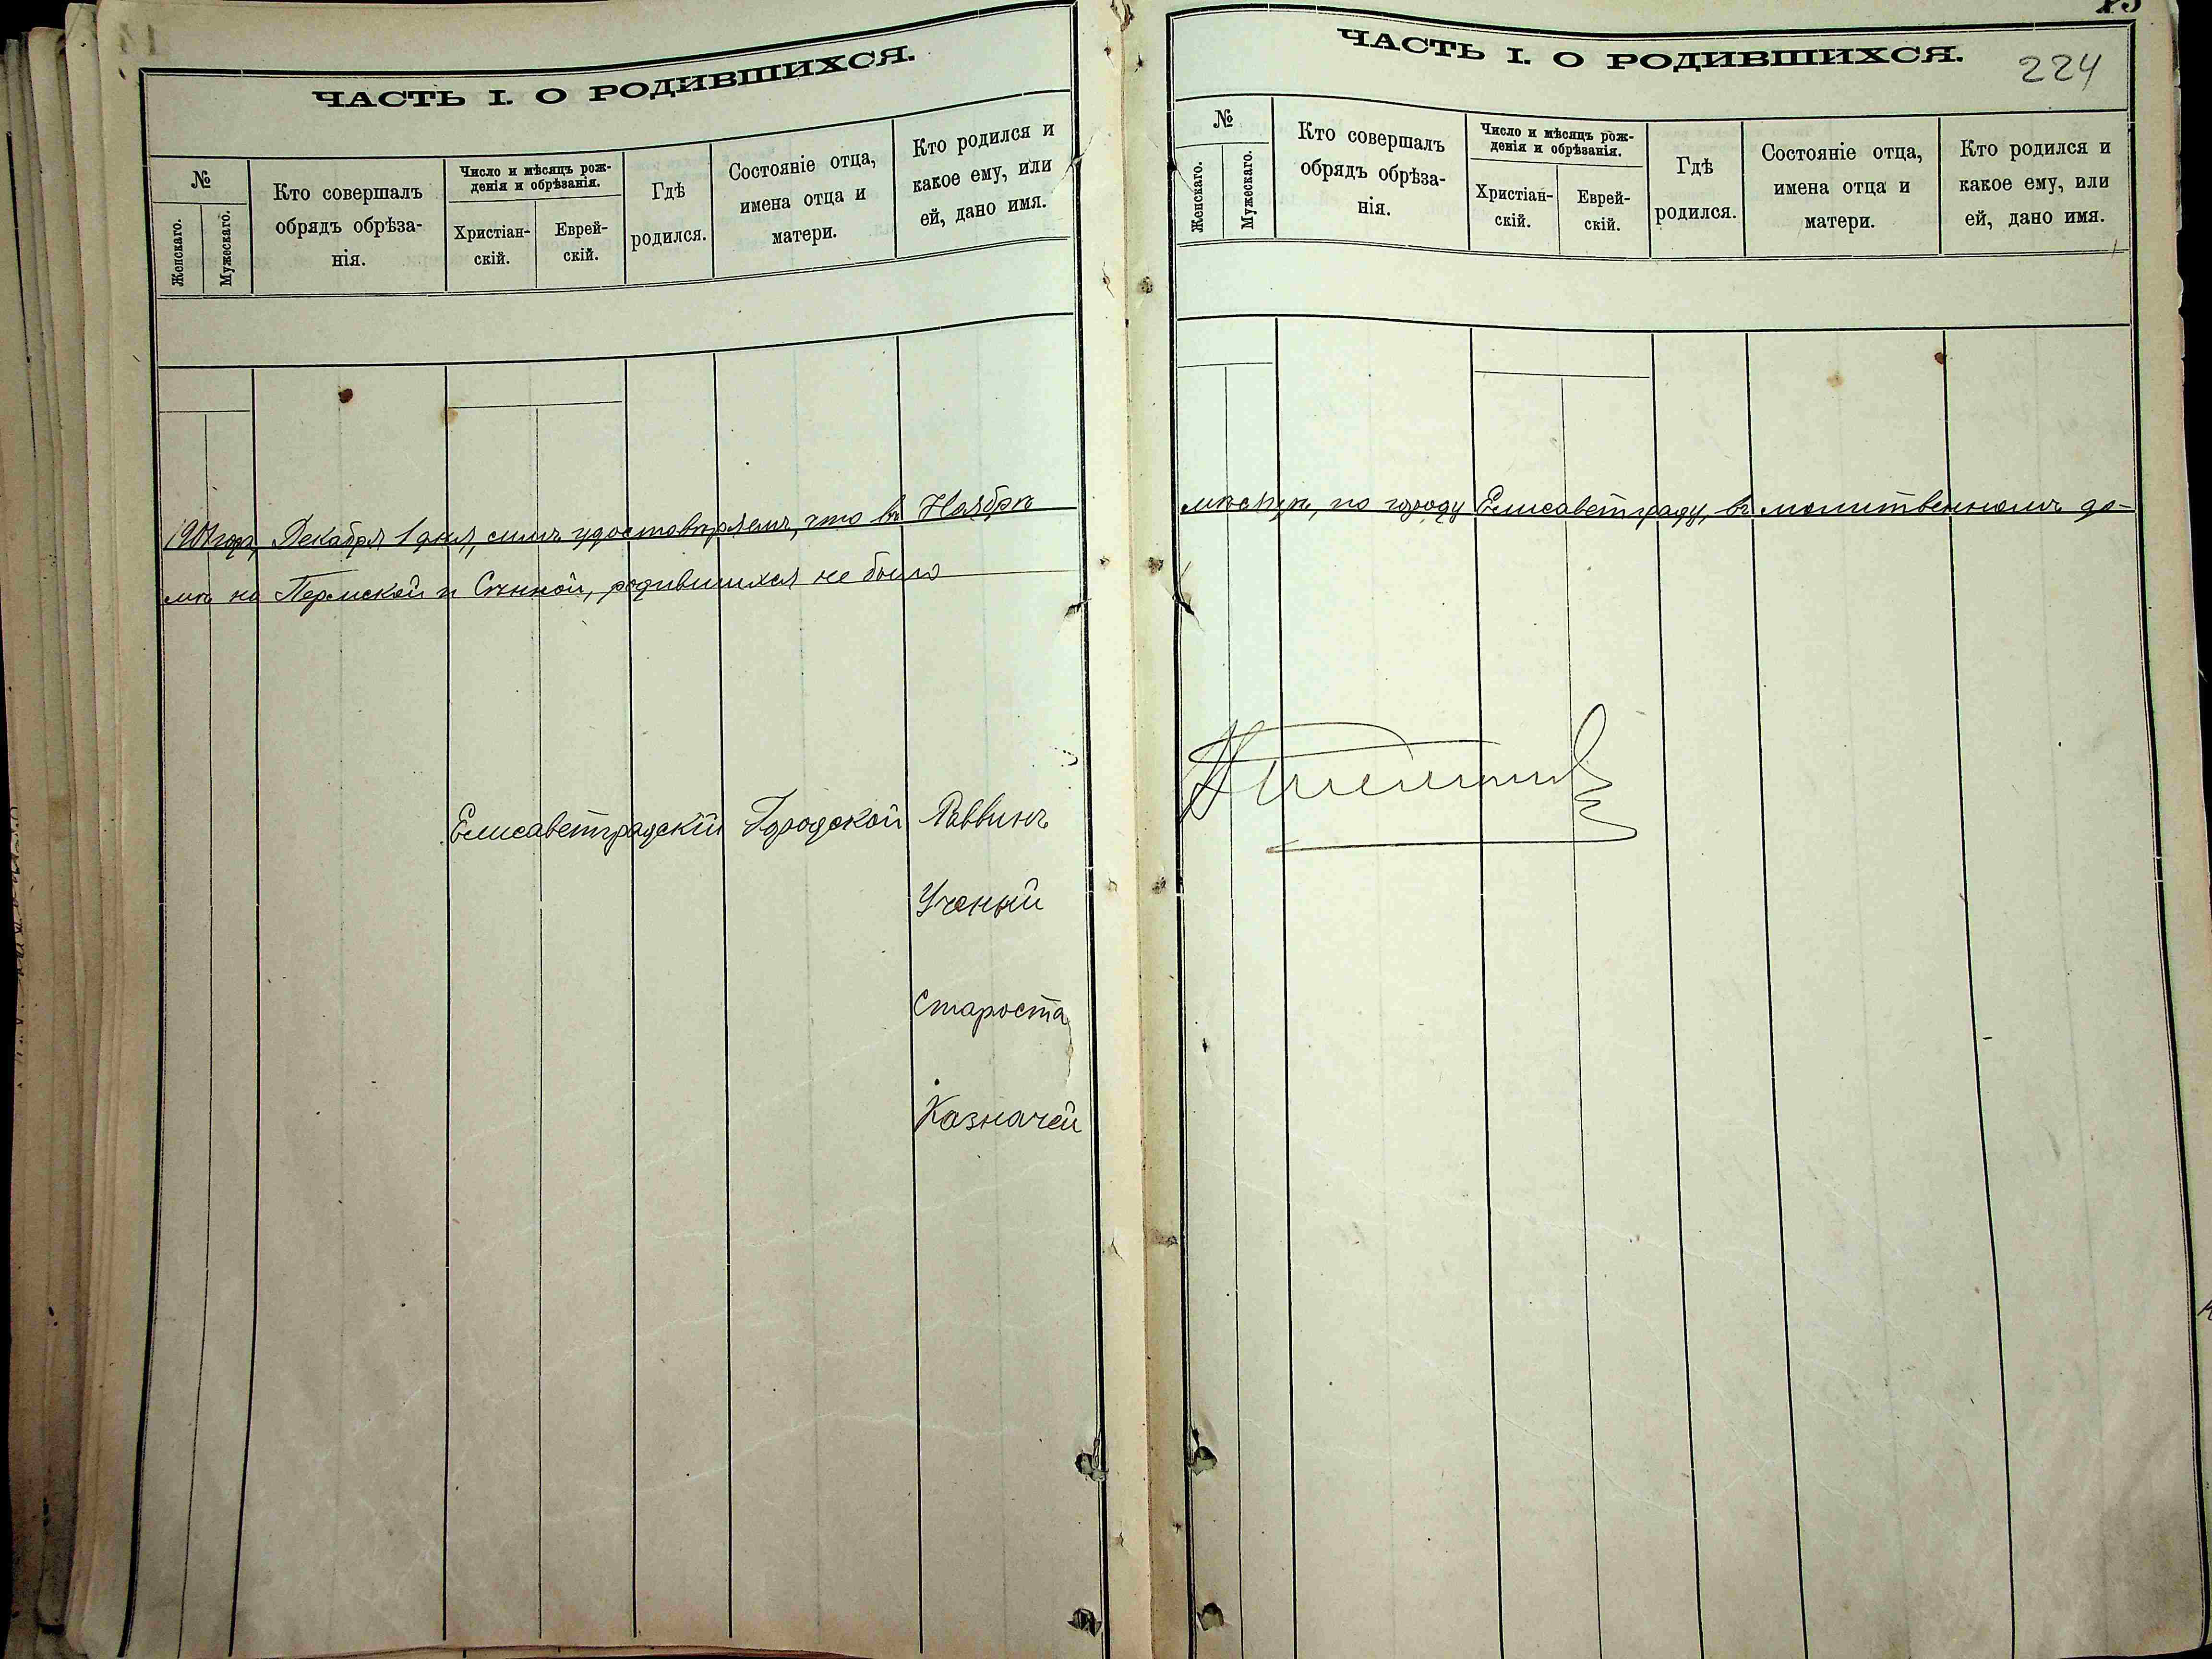 ЧАСТЬ I. О РОДИВШИХСЯ.
№
Женскаго.
Мужескаго.
Кто совершалъ
обрядъ обрѣза-
нія.
Число и мѣсяцъ рож-
денія и обрѣзанія.
Христіан-
скій.
Еврей-
скій.
Гдѣ
родился.
Состояніе отца,
имена отца и
матери.
Кто родился и
какое ему, или
ей, дано имя.
года, Декабря 1 дня, симъ удостовѣряемъ, что въ Ноябрѣ
мѣ на Пермской и Сѣнной, родившихся не было
Елисаветградскій Городской Раввинъ
Ученый
Староста
Казначей
ЧАСТЬ I. О РОДИВШИХСЯ.
224
№
Женскаго.
Мужескаго.
Кто совершалъ
обрядъ обрѣза-
нія.
Число и мѣсяцъ рож-
денія и обрѣзанія.
Христіан-
скій.
Еврей-
скій.
Гдѣ
родился.
Состояніе отца,
имена отца и
матери.
Кто родился и
какое ему, или
ей, дано имя.
мѣсяцѣ, по городу Елисаветграду, въ молитвенномъ до-